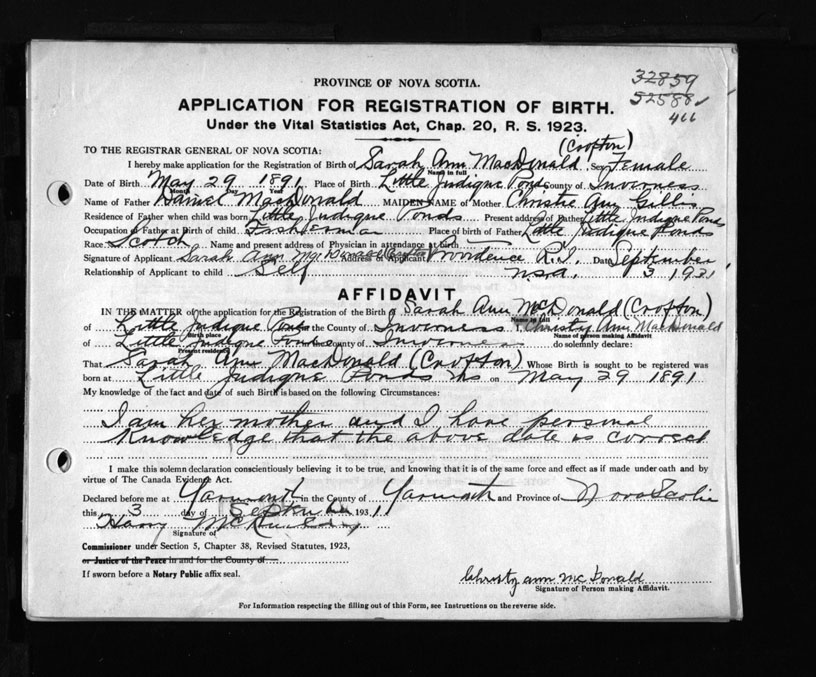 32859
52588
466
PROVINCE OF NOVA SCOTIA.
APPLICATION FOR REGISTRATION OF BIRTH.
Under the Vital Statistics Act, Chap. 20, R. S. 1923.
(Crofton)
TO THE REGISTRAR GENERAL OF NOVA SCOTIA:
I hereby make application for the Registration of Birth of Sarah Ann MacDonald Sex Female
Name in full
Date of Birth May 29 1891 Place of Birth Little Judique Ponds County of Inverness
Month Day Year
Name of Father Daniel MacDonald MAIDEN NAME of Mother Christie Ann Gillis
Residence of Father when child was born Little Judique Ponds Present address of Father Little Judique Ponds
Occupation of Father at Birth of child Fisherman Place of birth of Father Little Judique Ponds
Race Scotch Name and present address of Physician in attendance at birth —
Signature of Applicant Sarah Ann McDonald Crofton Address of Applicant Providence R.I. Date September
Relationship of Applicant to child Self U.S.A. 3 1931
AFFIDAVIT
IN THE MATTER of the application for the Registration of the Birth of Sarah Ann McDonald (Crofton)
Name in full
of Little Judique Ponds in the County of Inverness I, Christy Ann MacDonald
Birth place Name of person making Affidavit
of Little Judique Ponds County of Inverness do solemnly declare:
Present residence
That Sarah Ann MacDonald (Crofton) Whose Birth is sought to be registered was
born at Little Judique Ponds NS on May 29 1891
My knowledge of the fact and date of such Birth is based on the following Circumstances:
I am her mother and I have personal
knowledge that the above date is correct
I make this solemn declaration conscientiously believing it to be true, and knowing that it is of the same force and effect as if made under oath and by
virtue of The Canada Evidence Act.
Declared before me at Yarmouth in the County of Yarmouth and Province of Nova Scotia
this 3 day of September 1931
Harry
Signature of
Commissioner under Section 5, Chapter 38, Revised Statutes, 1923,
or Justice of the Peace in and for the County of
If sworn before a Notary Public affix seal.
Christy ann mc Donald
Signature of Person making Affidavit.
For Information respecting the filling out of this Form, see Instructions on the reverse side.